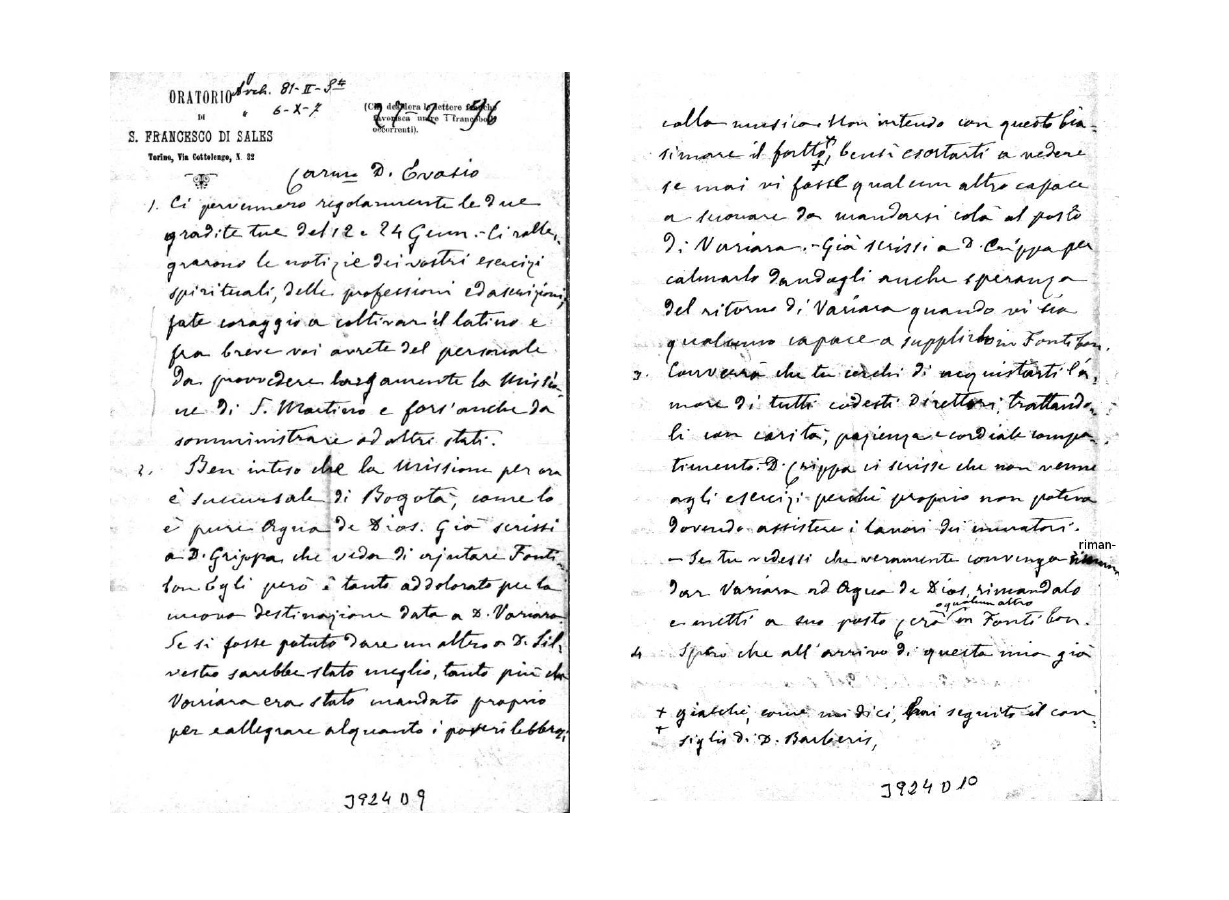 Arch. 81-II-34
" 6-X-7
ORATORIO
DI
S. FRANCESCO DI SALES
Torino, Via Cottolengo, N. 32
(Chi desidera lettere
favorisca unire i francobolli
occorrenti).
27 2 96
Carmo D. Evasio
1. Ci pervennero regolarmente le due
gradite tue del 12 e 24 Genn.- Ci ralle-
grarono le notizie dei vostri esercizi
spirituali, delle professioni ed ascrizioni,
fate coraggio a coltivar il latino e
fra breve voi avrete del personale
da provvedere largamente la Missio-
ne di S. Martino e fors'anche da
somministrare ad altri stati.
2. Ben inteso che la Missione per ora
è succursale di Bogotà, come lo
è pure Agua de Dios. Già scrissi
a D. Grippa che veda di ajutare Fonti-
bon Egli però è tanto addolorato per la
nuova destinazione data a D. Variara
Se si fosse potuto dare un altro a D. Sil-
vestro sarebbe stato meglio, tanto più che
Variara era stato mandato proprio
per rallegrare alquanto i poveri lebbrosi
J924D9
colla musica. Non intendo con questo bia-
simare il fatto, + bensì esortarti a vedere
se mai vi fosse qualcun altro capace
a suonare da mandarsi colà al posto
di Variara.- Già scrissi a D. Crippa per
calmarlo dandogli anche speranza
del ritorno di Variara quando vi sia
qualcuno capace a supplirlo in Fontibon.
3. Converrà che tu cerchi di acquistarti l'a-
more di tutti codesti Direttori, trattando-
li con carità, pazienza e cordiale compa-
timento. D. Crippa ci scrisse che non venne
agli esercizi perchè proprio non poteva
dovendo assistere i lavori dei muratori.
- Se tu vedessi che veramente convenga riman-
dar Variara ad Agua de Dios, rimandalo
e metti a suo posto qualcun altro però in Fontibon.
4 Spero che all'arrivo di questa mia già
+ giacchè, come mi dici, hai seguito il con-
+ siglio di D. Barberis,
J924D10